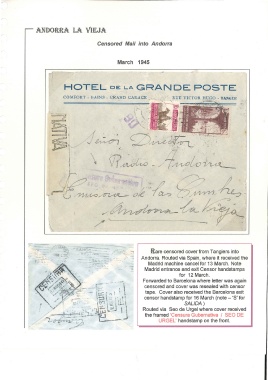 ANDORRA LA VIEJA
Censored Mail into Andorra
March 1945
HOTEL DE LA GRANDE POSTE
COMFORT - RADIO - GRAND GARAGE RUE VICTOR HUGO - TANGER
Señor Director
Radio-Andorra
Emisora de las Cumbres
Andorra la Vieja
Rare censored cover from Tangiers into
Andorra. Routed via Spain, where it received the
Madrid machine cancel for 13 March. Note
Madrid entrance and exit Censor handstamps
for 12 March.
Forwarded to Barcelona where letter was again
censored and cover was resealed with censor
tape. Cover also received the Barcelona exit
censor handstamp for 16 March (note - 'S' for
SALIDA.)
Routed via Seo de Urgel where cover received
the framed 'Censura Gubernativa / SEO DE
URGEL' handstamp on the front.